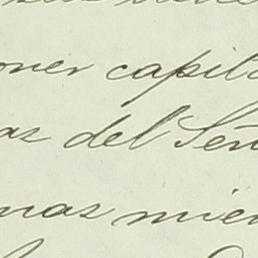 oner capit
as del Señ
nas mien